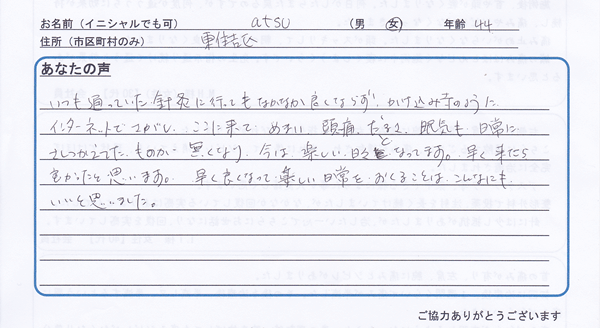 お名前（イニシャルでも可） atsu （男 女） 年齢 44
住所（市区町村のみ） 東住吉区
あなたの声
いつも通っていた針灸に行ってもなかなか良くならず、かけ込み寺のように
インターネットでさがし、ここに来て めまい、頭痛、だるさ、眠気も 日常に
さしつかえてた ものが 無くなり 今は 楽しい 日々となってます。早く来たら
良かったと思います。 早く良くなって 楽しい 日常を おくることは、こんなにも
いいと思いました。
ご協力ありがとうございます